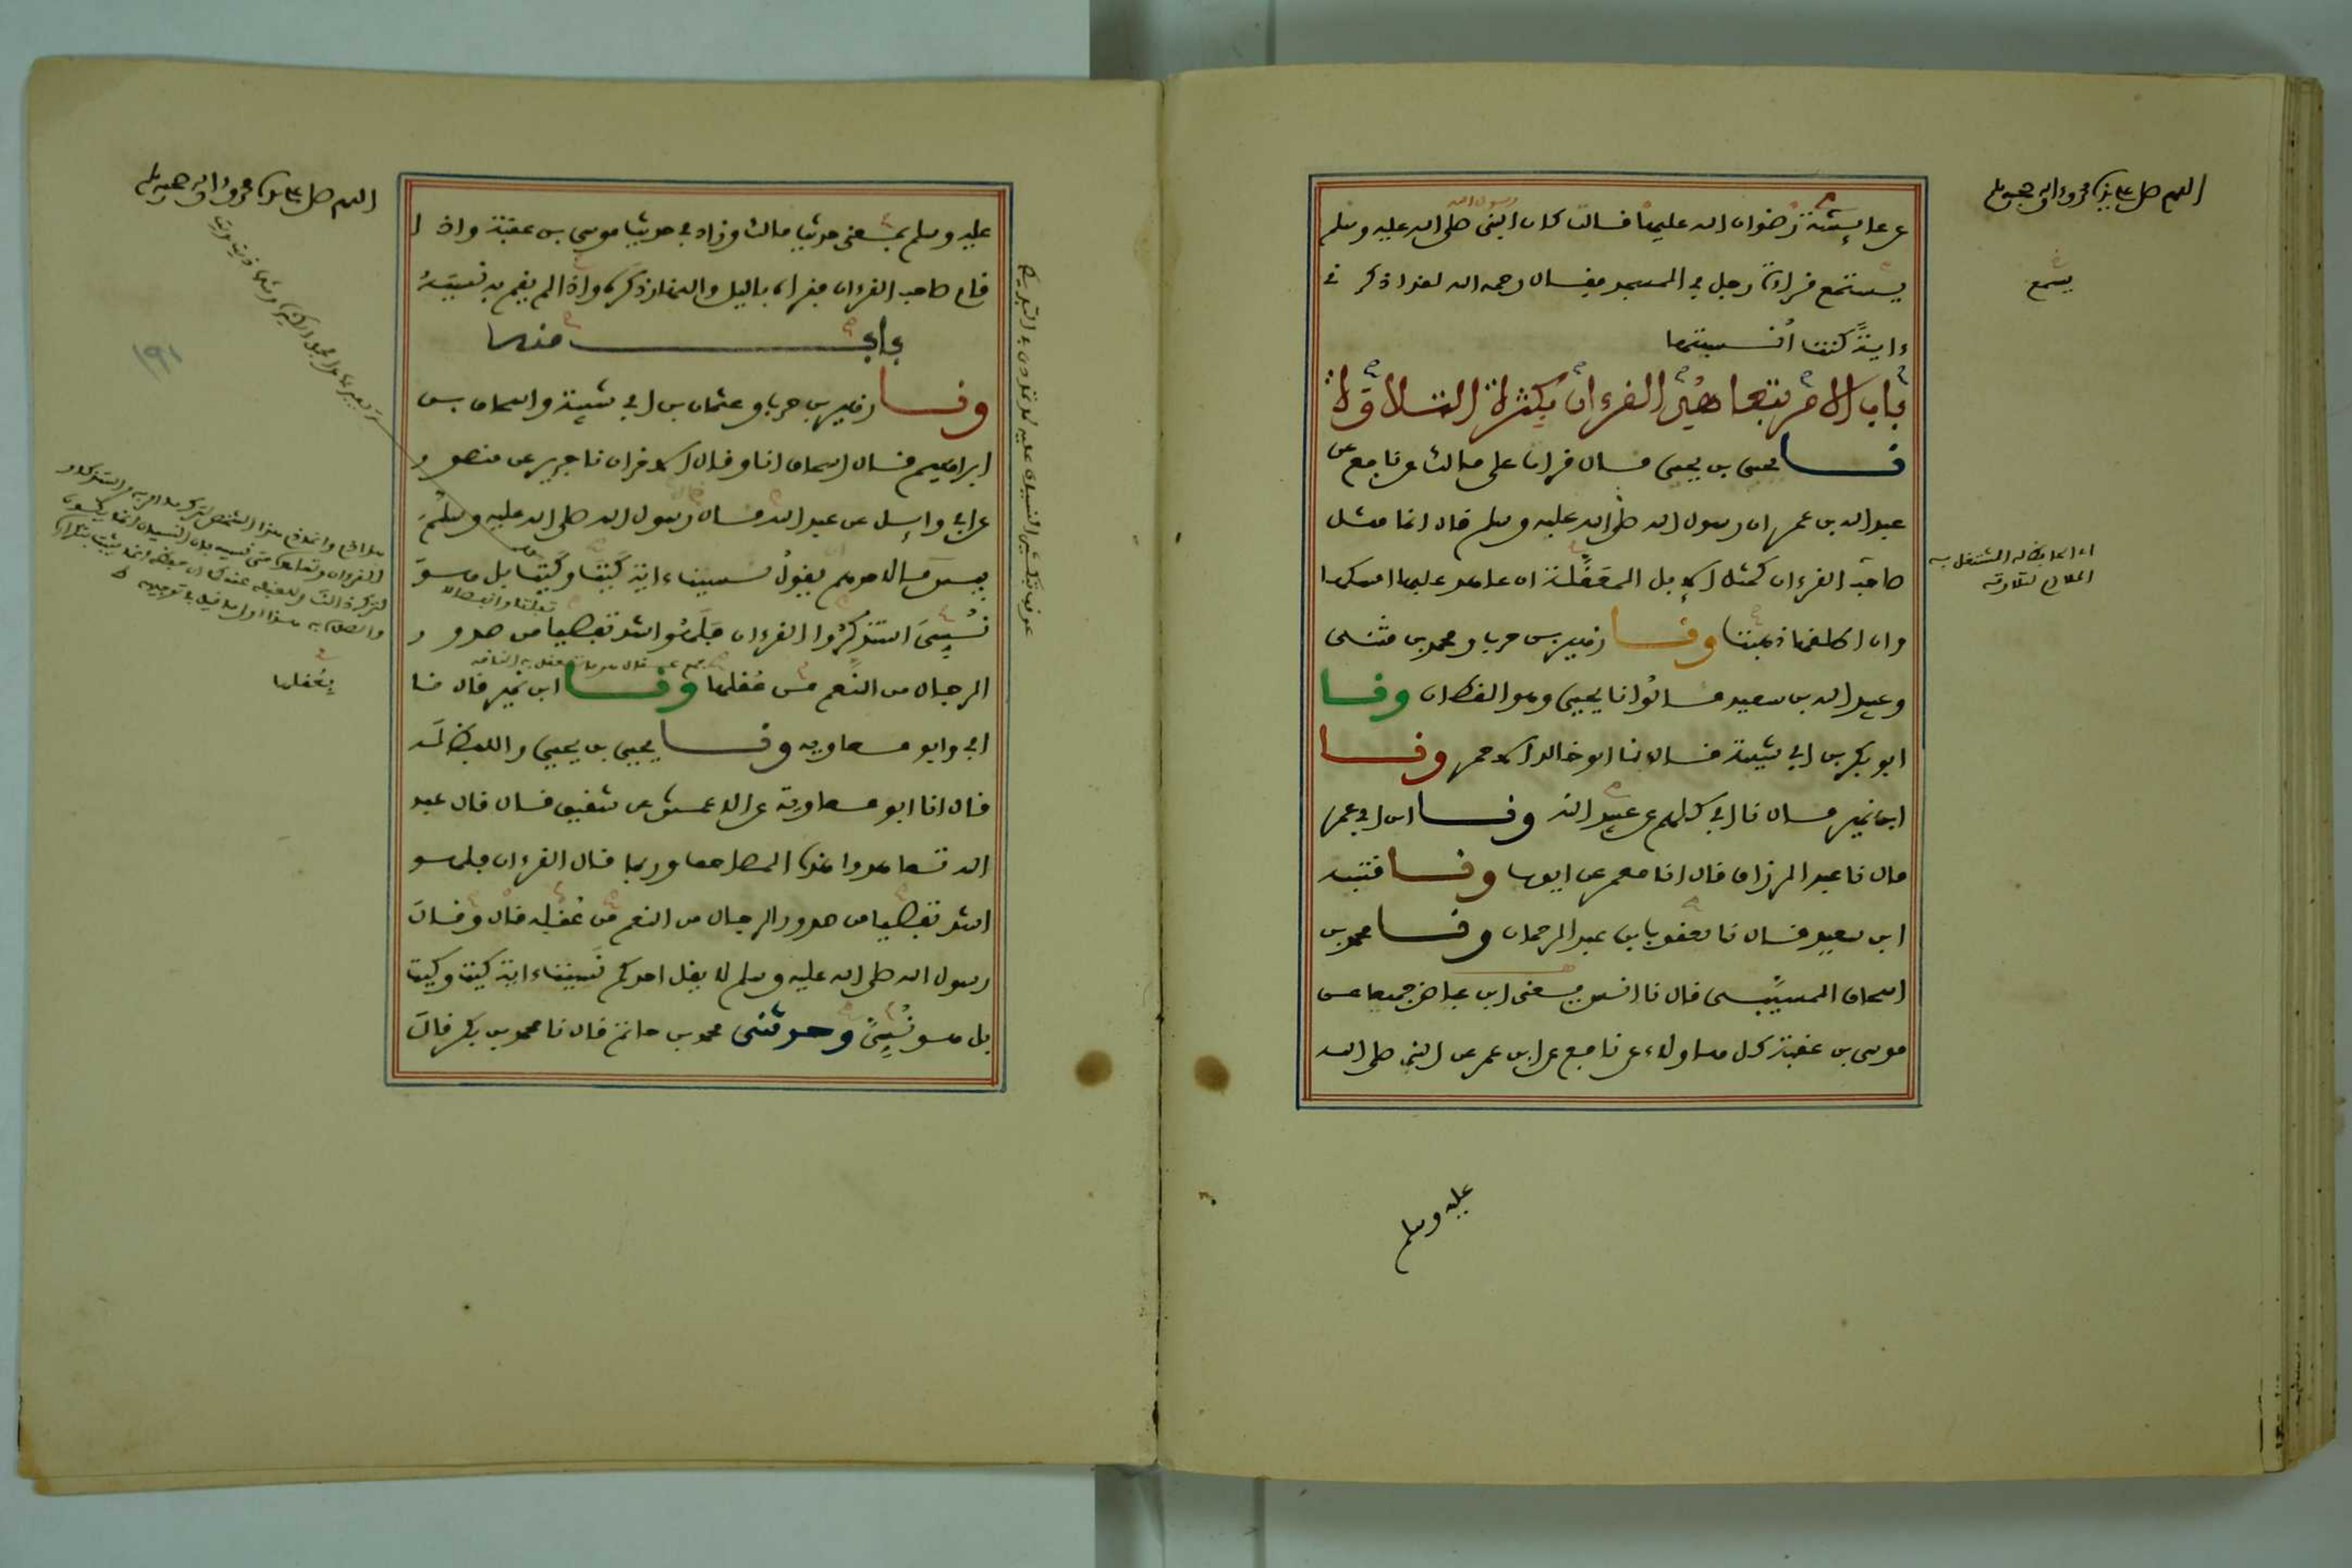 اللهم صل على سيدنا محمد وءاله وصحبه وسلم
عن عايشة رضوان الله عليها قالت كان النبي صلى الله عليه وسلم
رسول الله
يستمع قراءة رجل في المسجد فقال رحمه الله لقد اذكرني
يسمع
ءاية كنت أنسيتها
باب الامر بتعاهد القرءان بكثرة التلاوة
نا يحيى بن يحيى قال قرات على مالك عن نافع عن
عبد الله بن عمر ان رسول الله صلى الله عليه وسلم قال انما مثل
صاحب القرءان كمثل الابل المعقلة ان عاهد عليها امسكها
وان اطلقها ذهبت ونا زهير بن حرب ومحمد بن مثنى
وعبيد الله بن سعيد قالوا نا يحيى وهو القطان ونا
ابو بكر بن ابي شيبة قال نا ابو خالد الاحمر ونا
ابن نمير قال نا ابي كلهم عن عبيد الله ونا ابن ابي عمر
قال نا عبد الرزاق قال انا معمر عن ايوب ونا قتيبة
ابن سعيد قال نا يعقوب ابن عبد الرحمان ونا محمد بن
اسحاق المسيبي قال نا انس يعني ابن عياض جميعا عن
موسى بن عقبة كل هاولاء عن نافع عن ابن عمر عن النبي صلى الله
عليه وسلم
اللهم صل على سيدنا محمد وءاله وصحبه وسلم
عليه وسلم بمعنى حديث مالك وزاد في حديث موسى بن عقبة واذا
قام صاحب القرءان فقراه بالليل والنهار ذكره واذا لم يقم به نسيه
باب منه
ونا زهير بن حرب وعثمان بن ابي شيبة واسحاق بن
ابراهيم قال اسحاق انا وقال الاخران نا جرير عن منصور
عن ابي وائل عن عبد الله قال قال رسول الله صلى الله عليه وسلم
بيس ما لاحدهم يقول نسيت ءاية كيت وكيت بل هو
نسي استذكروا القرءان فلهو اشد تفصيا من صدور
الرجال من النعم من عقلها ونا ابن نمير قال نا
بعقلها
ابي وابو معاوية ونا يحيى بن يحيى واللفظ له
قال انا ابو معاوية عن الاعمش عن شقيق قال قال عبد
الله تعاهدوا هذه المصاحف وربما قال القرءان فلهو
اشد تفصيا من صدور الرجال من النعم من عقله قال وقال
رسول الله صلى الله عليه وسلم لا يقل احدكم نسيت ءاية كيت وكيت
بل هو نسي وحدثني محمد بن حاتم قال نا محمد بن بكر قال